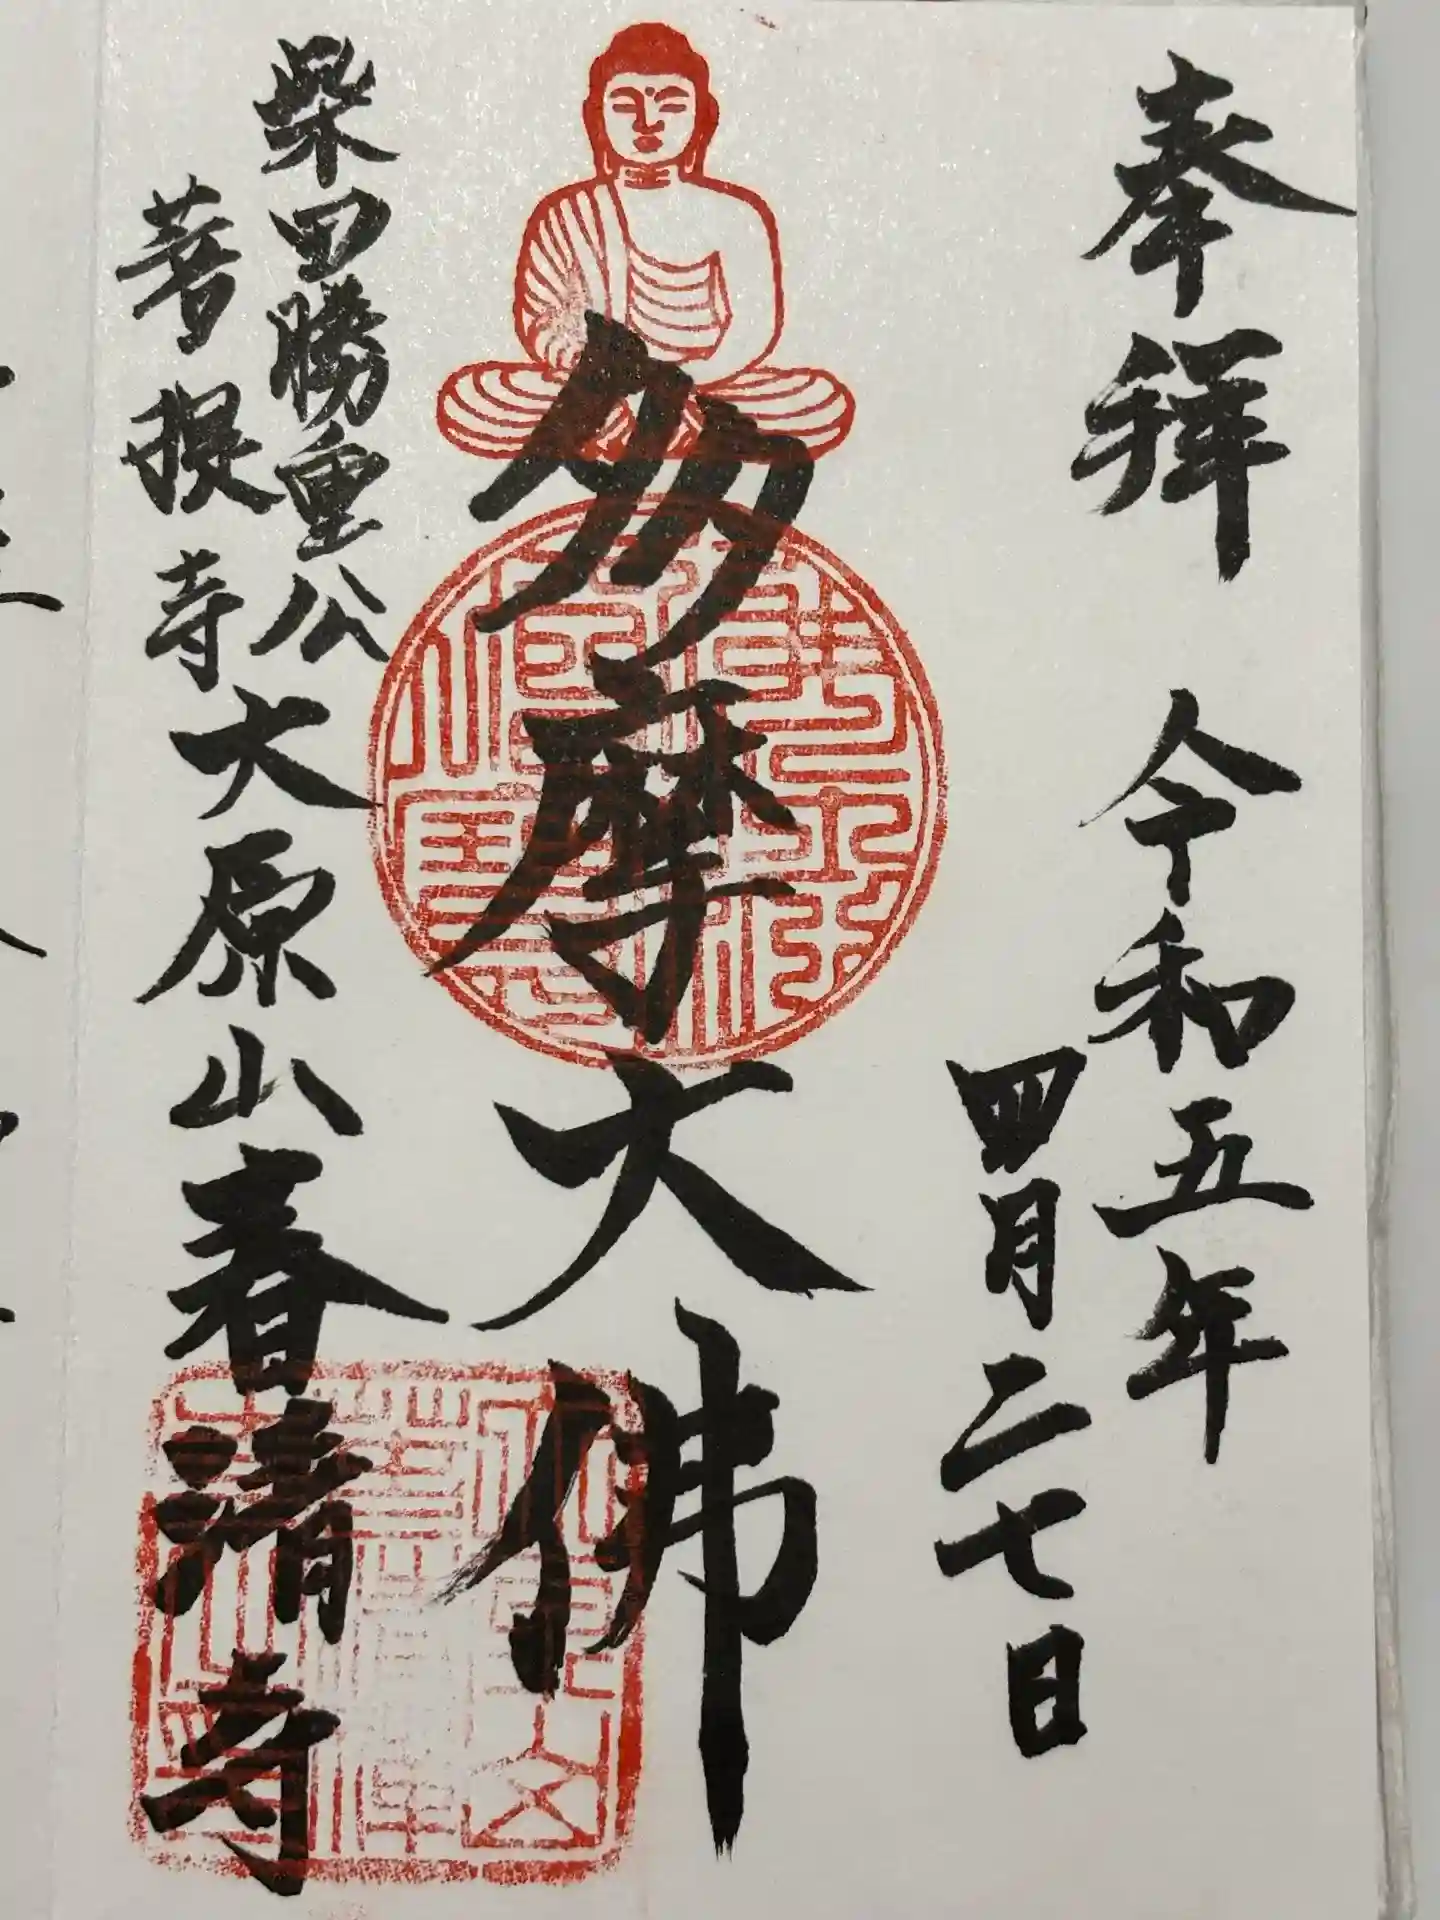 奉拝 令和五年
四月二七日
多摩大佛
柴田勝重公
菩提寺
大原山春清寺